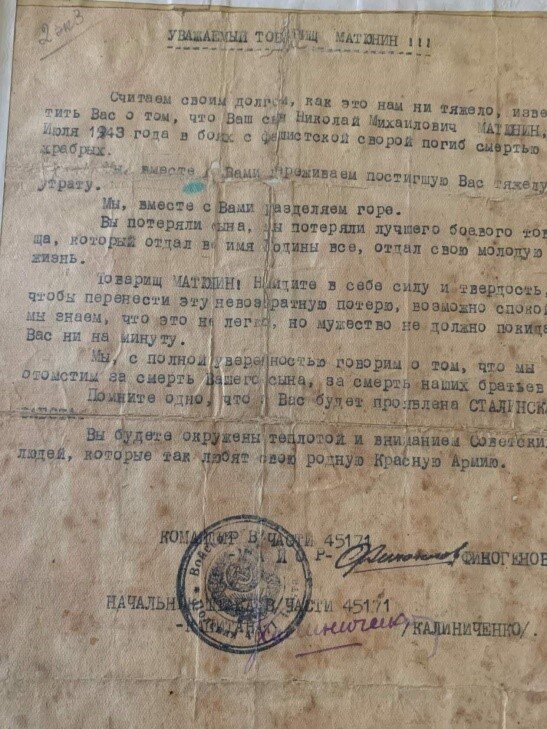 2 экз
УВАЖАЕМЫЙ ТОВАРИЩ МАТЮНИН !!!
Считаем своим долгом, как это нам ни тяжело, изве
тить Вас о том, что Ваш сын Николай Михайлович МАТЮНИН,
Июля 1943 года в боях с фашистской сворой погиб смертью
храбрых.
вместе с Вами переживаем постигшую Вас тяжелу
утрату.
Мы, вместе с Вами разделяем горе.
Вы потеряли сына, мы потеряли лучшего боевого тов
ща, который отдал во имя Родины все, отдал свою молодую
жизнь.
Товарищ МАТЮНИН! Найдите в себе силу и твердость,
чтобы перенести эту невозвратную потерю, возможно спокой
мы знаем, что это не легко, но мужество не должно покида
Вас ни на минуту.
Мы, с полной уверенностью говорим о том, что мы
отомстим за смерть Вашего сына, за смерть наших братьев
Помните одно, что к Вас будет проявлена СТАЛИНСКА
Вы будете окружены теплотой и вниманием Советски
людей, которые так любят свою родную Красную Армию.
КОМАНДИР В/ЧАСТИ 45171
Р- ФИНОГЕНОВ
НАЧАЛЬНИК В/ЧАСТИ 45171
/КАЛИНИЧЕНКО/.